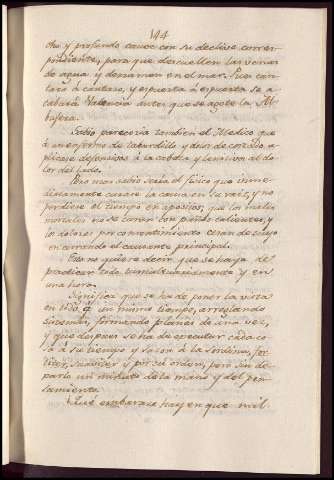 144
cho y profundo cauce con su declive corres-
pondiente, para que descuellen las venas
de agua y derramen en el mar. Pues can-
taro à cantaro, y espuerta à espuerta se a-
cabará Valencia antes que se agote la Al-
bufera.
Sabio pareceria tambien el Medico que
à un enfermo de tabardillo y dolor de costado a-
plicase defensivos à la cabeza y lenitivos al do-
lor del lado.
Pero mas sabio seria el fisico que inme-
diatamente curase la causa en su raiz, y no
perdiese el tiempo en apositos; que los males
mortales no se curan con paños calientes, y
los dolores por consentimiento cesan de suyo
en cerrando el causante principal.
Esto no quiere decir que se haya de
practicar todo tumultuariamente y en
una hora.
Significa que se ha de poner la vista
en todo à un mismo tiempo, arreglando
sistemas, formando planes de una vez,
y que despues se ha de executar cada co-
sa à su tiempo y sazon à la sordina, for-
titer, suaviter y por su orden, pero sin de-
jarlo un minuto de la mano y del pen-
samiento.
Qué embarazo hay en que mil